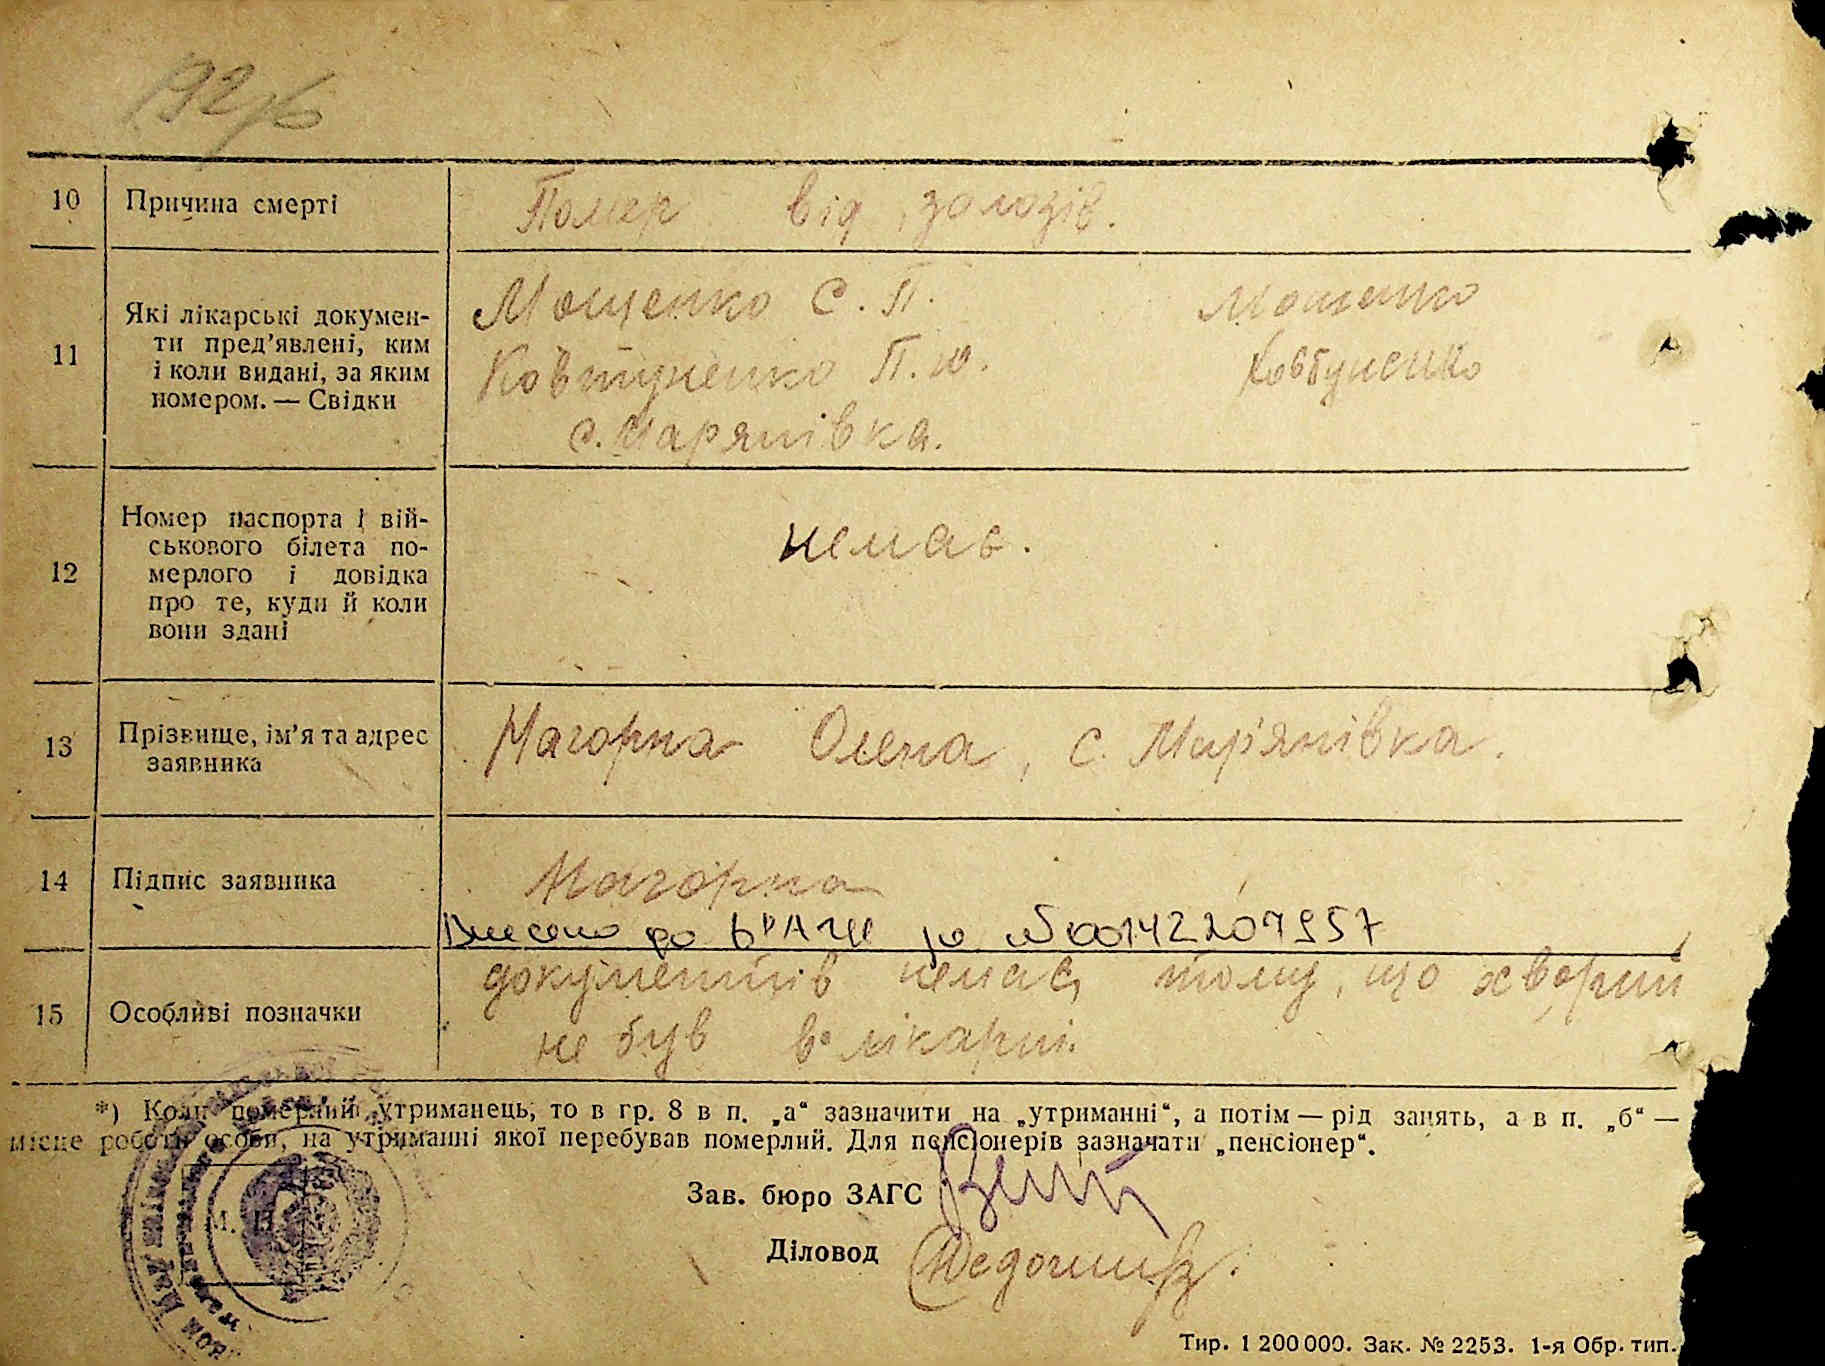 10 Причина смерті Помер від залозів.
11 Які лікарські докумен-
ти пред’явлені, ким
і коли видані, за яким
номером. — Свідки
Мощенко С. П. Мощенко
Ковтуненко П. Ю. Ковтуненко
с. Марянівка.
12 Номер паспорта і вій-
ськового білета по-
мерлого і довідка
про те, куди й коли
вони здані
немає.
13 Прізвище, ім’я та адрес
заявника
Нагорна Олена, с. Мар'янівка.
14 Підпис заявника Нагорна
Внесено до за № 00142207957
15 Особливі позначки
документів немає, тому, що хворий
не був в лікарні.
*) Коли померлий утриманець, то в гр. 8 в п. „а“ зазначити на „утриманні“, а потім — рід занять, а в п. „б“ —
місце роботи особи, на утриманні якої перебував померлий. Для пенсіонерів зазначати „пенсіонер“.
Зав. бюро ЗАГС
М. П.
Діловод
Тир. 1 200 000. Зак. № 2253. 1-я Обр. тип.